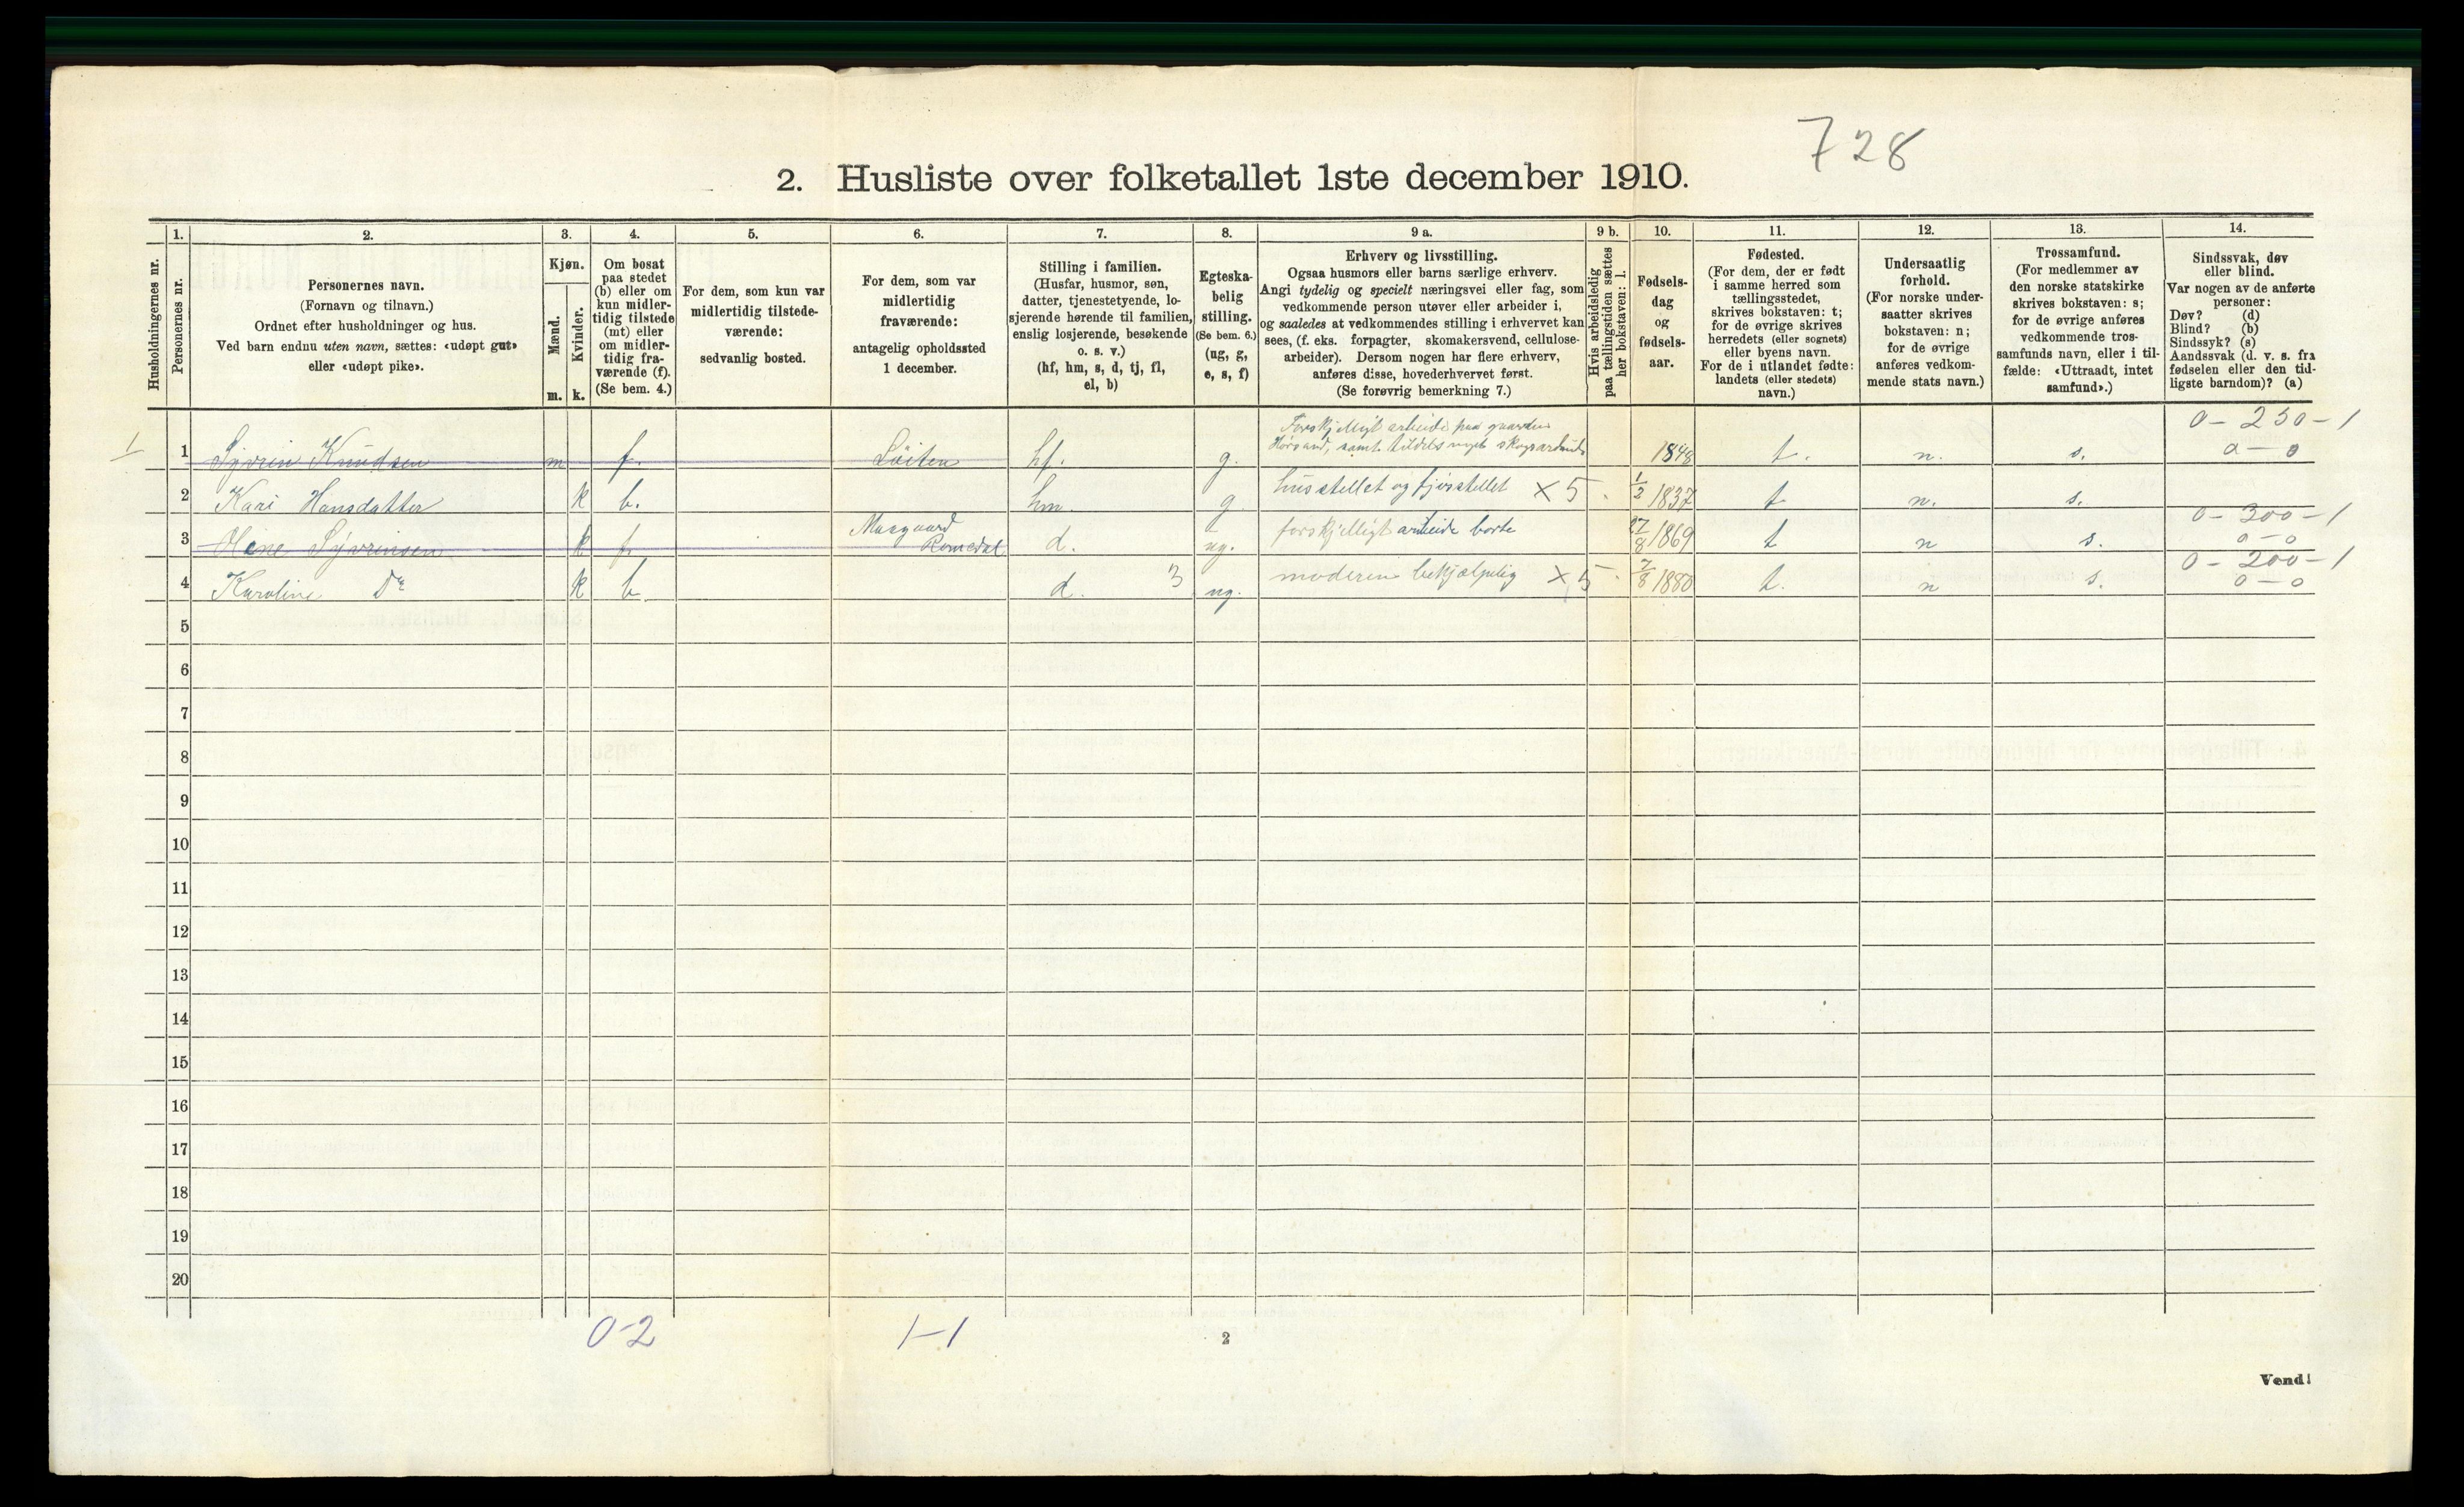 728
2. Husliste over folketallet 1ste december 1910.
1. 2. 3. 4. 5. 6. 7. 8. 9 a. 9 b. 10. 11. 12. 13. 14.
Husholdningernes nr.
Personernes nr.
Personernes navn.
(Fornavn og tilnavn.)
Ordnet efter husholdninger og hus.
Ved barn endnu uten navn, sættes: «udøpt gut»
eller «udøpt pike».
Kjøn.
Mænd.
Kvinder.
m. k.
Om bosat
paa stedet
(b) eller om
kun midler-
tidig tilstede
(mt) eller
om midler-
tidig fra-
værende (f).
(Se bem. 4.)
For dem, som kun var
midlertidig tilstede-
værende:
sedvanlig bosted.
For dem, som var
midlertidig
fraværende:
antagelig opholdssted
1 december.
Stilling i familien.
(Husfar, husmor, søn,
datter, tjenestetyende, lo-
sjerende hørende til familien,
enslig losjerende, besøkende
o. s. v.)
(hf, hm, s, d, tj, fl,
el, b)
Egteska-
belig
stilling.
(Se bem. 6.)
(ug, g,
e, s, f)
Erhverv og livsstilling.
Ogsaa husmors eller barns særlige erhverv.
Angi tydelig og specielt næringsvei eller fag, som
vedkommende person utøver eller arbeider i,
og saaledes at vedkommendes stilling i erhvervet kan
sees, (f. eks. forpagter, skomakersvend, cellulose-
arbeider). Dersom nogen har flere erhverv,
anføres disse, hovederhvervet først.
(Se forøvrig bemerkning 7.)
Hvis arbeidsledig
paa tællingstiden sættes
her bokstaven: l.
Fødsels-
dag
og
fødsels-
aar.
Fødested.
(For dem, der er født
i samme herred som
tællingsstedet,
skrives bokstaven: t;
for de øvrige skrives
herredets (eller sognets)
eller byens navn.
For de i utlandet fødte:
landets (eller stedets)
navn.)
Undersaatlig
forhold.
(For norske under-
saatter skrives
bokstaven: n;
for de øvrige
anføres vedkom-
mende stats navn.)
Trossamfund.
(For medlemmer av
den norske statskirke
skrives bokstaven: s;
for de øvrige anføres
vedkommende tros-
samfunds navn, eller i til-
fælde: «Uttraadt, intet
samfund».)
Sindssvak, døv
eller blind.
Var nogen av de anførte
personer:
Døv? (d)
Blind? (b)
Sindssyk? (s)
Aandssvak (d. v. s. fra
fødselen eller den tid-
ligste barndom)? (a)
Forskjelligt arbeide paa gaarden 0-250-1
samt tildels noget
1 1 Syvrin Knudsen m f. Løiten hf. g. 1848 t. n. s. 0-0
2 Kari Hansdatter k b. hm. g husstellet og fjøsstellet X 5. 1/2 1837 t n. s.
Romedal 0-300-1
3 Oline Syvrinsen k f d. ug. forskjelligt arbeide borte 27/8 1869 t n s. 0-0
0-200-1
4 Karoline Do k b d. 3 ug. moderen behjælpelig X 5. 7/8 1880 t. n s. 0-0
5
6
7
8
9
10
11
12
13
14
15
16
17
18
19
20
0-2 1-1
2
Vend!